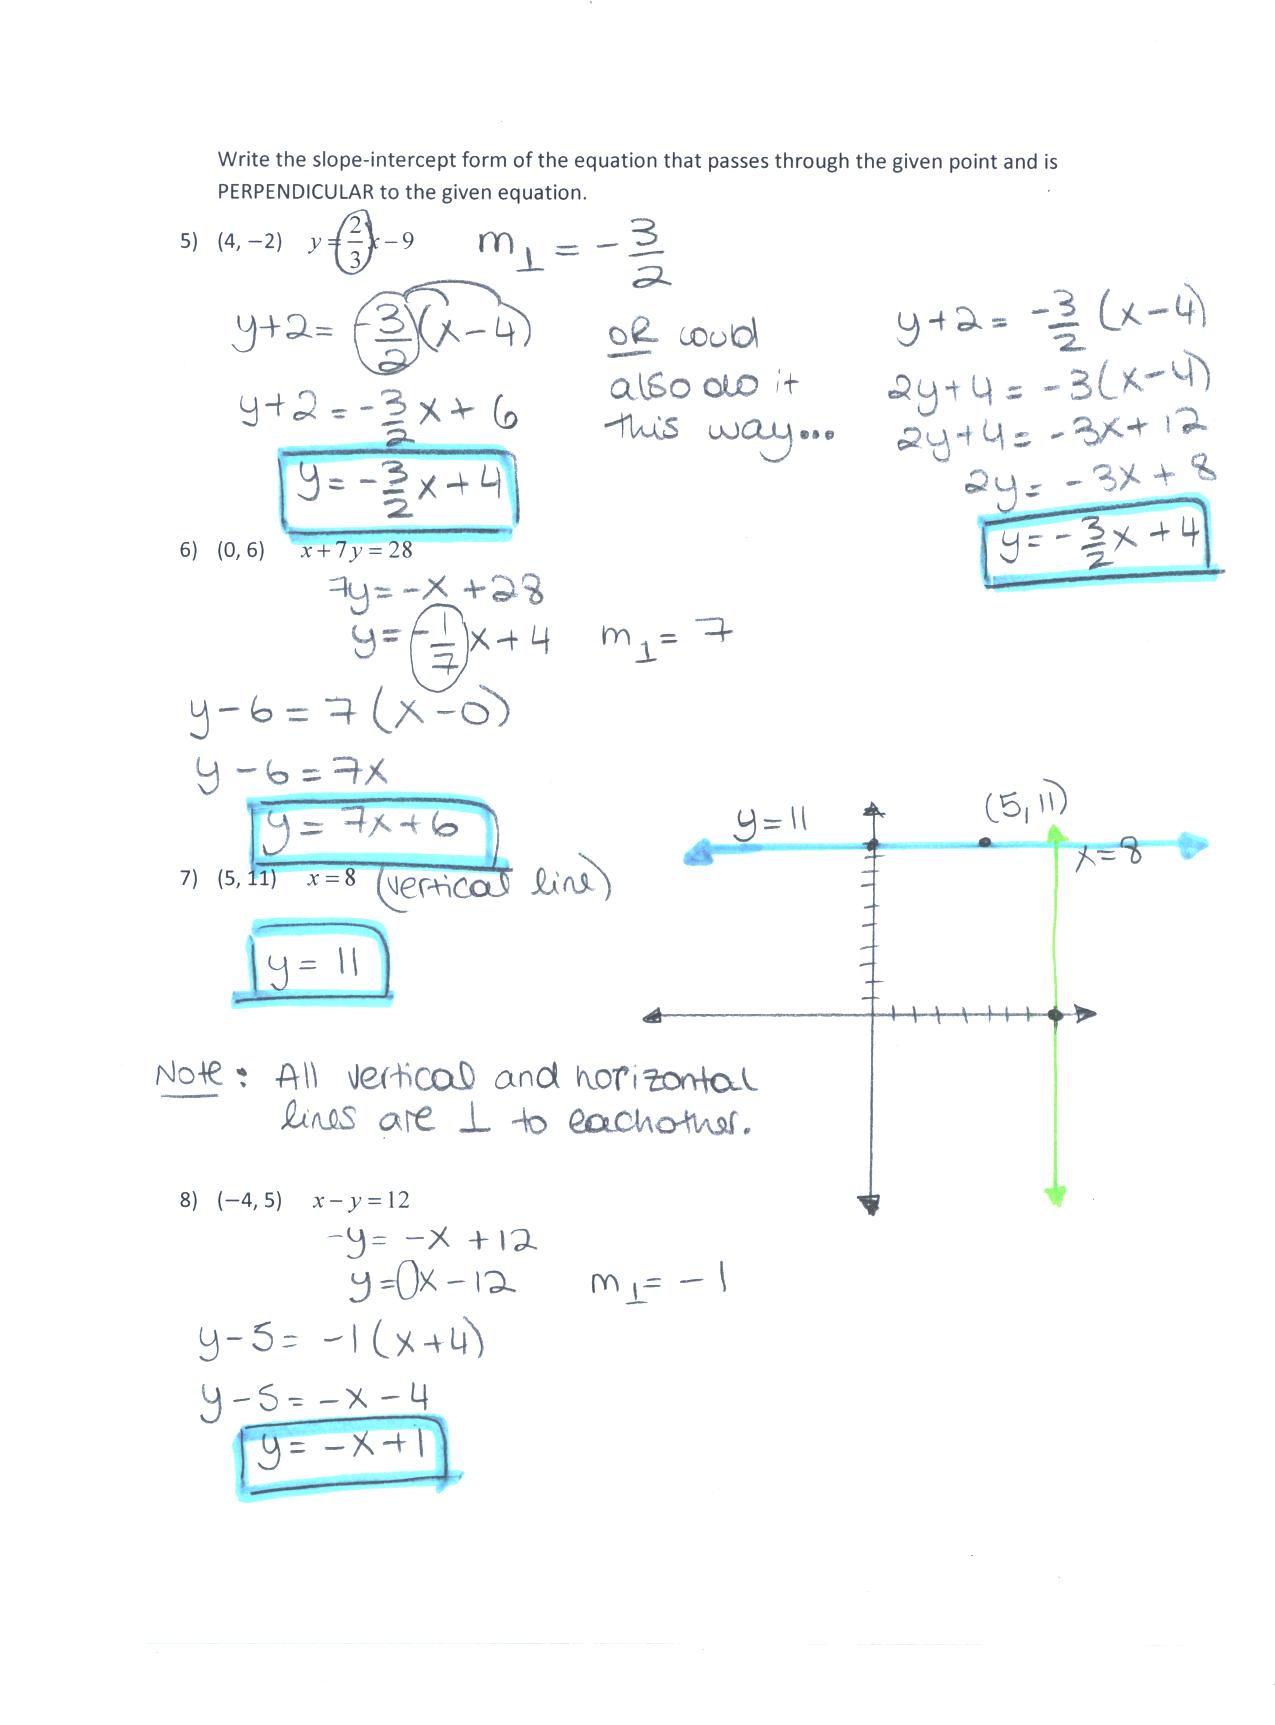 Write the slope-intercept form of the equation that passes through the given point and is
PERPENDICULAR to the given equation.
5) (4, −2) y = 2/3 x − 9 m⊥ = -3/2
y+2 = -3/2 (x-4)
y+2 = -3/2 x + 6
y = -3/2 x + 4
OR could
also do it
this way...
y+2 = -3/2 (x-4)
2y+4 = -3(x-4)
2y+4 = -3x+12
2y = -3x + 8
y = -3/2 x + 4
6) (0, 6) x + 7y = 28
7y = -x + 28
y = -1/7 x + 4 m⊥ = 7
y-6 = 7(x-0)
y-6 = 7x
y = 7x+6
7) (5, 11) x = 8 (vertical line)
y = 11
y=11
(5,11)
x=8
Note: All vertical and horizontal
lines are ⊥ to eachother.
8) (−4, 5) x − y = 12
-y = -x + 12
y = x - 12 m⊥ = -1
y-5 = -1(x+4)
y-5 = -x-4
y = -x+1